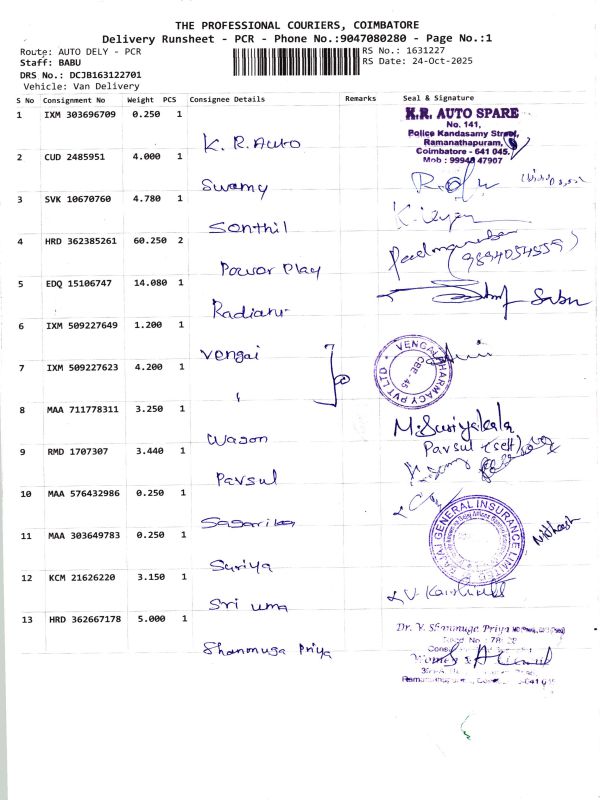 THE PROFESSIONAL COURIERS, COIMBATORE
Delivery Runsheet - PCR - Phone No.:9047080280 - Page No.:1
Route: AUTO DELY - PCR
RS No.: 1631227
Staff: BABU
RS Date: 24-Oct-2025
DRS No.: DCJB163122701
Vehicle: Van Delivery
S No Consignment No Weight PCS Consignee Details Remarks Seal & Signature
1 IXM 303696709 0.250 1
K.R. Auto
K.R. AUTO SPARE
No. 141,
Police Kandasamy Street,
Ramanathapuram,
Coimbatore - 641 045.
Mob : 99948 47907
2 CUD 2485951 4.000 1
Swamy
3 SVK 10670760 4.780 1
Sonthil
4 HRD 362385261 60.250 2
Power Play
(9894054559)
5 EDQ 15106747 14.080 1
Radiant
6 IXM 509227649 1.200 1
Vengai
VENGAI PHARMACY PVT LTD
CBE - 45
7 IXM 509227623 4.200 1
8 MAA 711778311 3.250 1
Wason
M. Suriyakala
9 RMD 1707307 3.440 1
Pavsul
Pavsul (self)
10 MAA 576432986 0.250 1
Sagarika
11 MAA 303649783 0.250 1
Suriya
BAJAJ GENERAL INSURANCE LIMITED
12 KCM 21626220 3.150 1
Sri uma
13 HRD 362667178 5.000 1
Shanmuga Priya
Dr. V. Shanmuga Priya